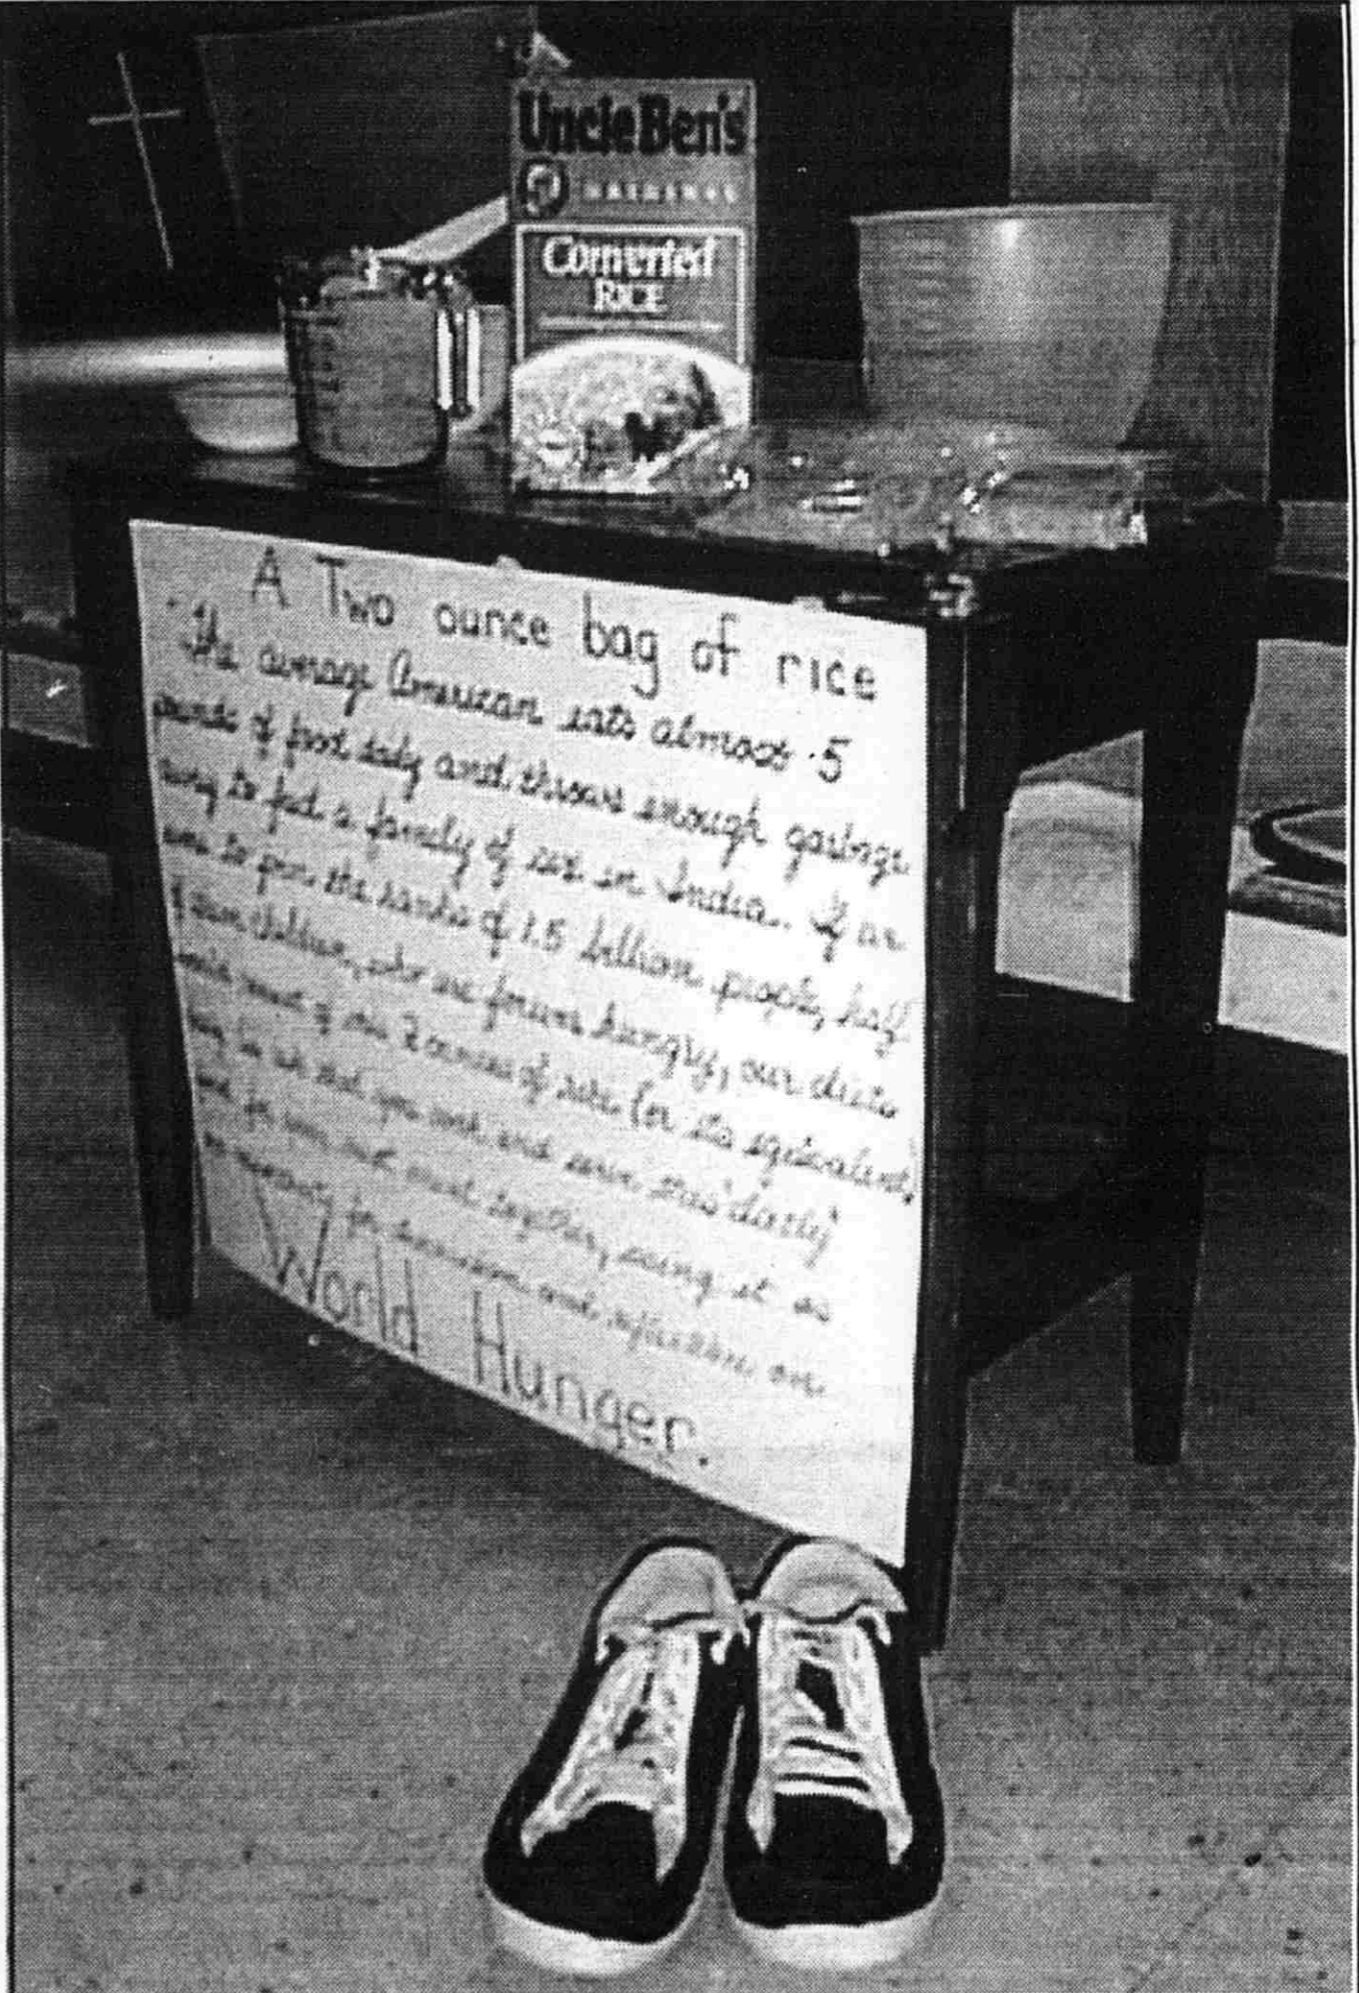 Uncle Ben's
ORIGINAL
Converted
RICE
A Two ounce bag of rice
The average American eats almost .5
of food daily and throws enough garbage
away to feed a family of six in India. If we
were to join the ranks of 1.5 billion people, half
children, who are forever hungry, our diets
would consist of one 2 ounces of rice (or its equivalent)
you cook and serve this daily
for your next meal together, using it as
for discussion and reflection on
World Hunger.